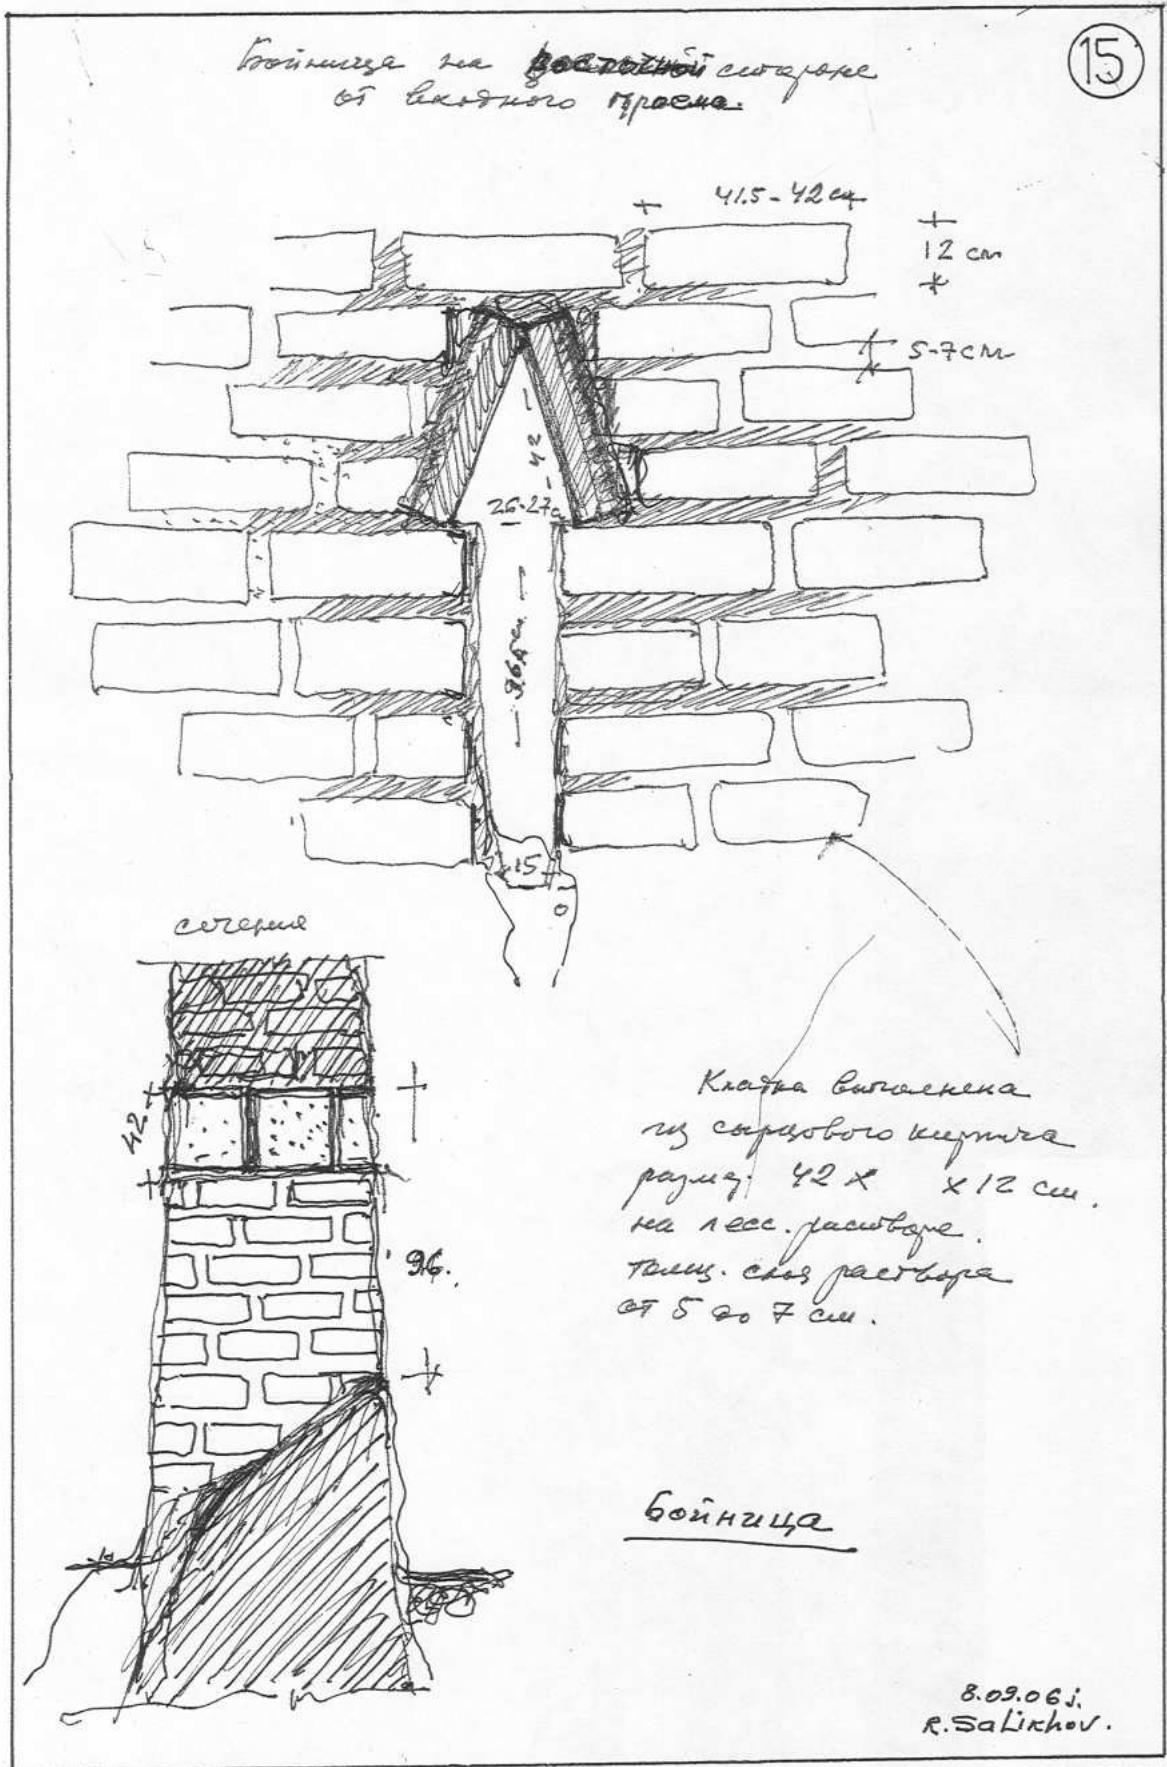 15
Бойница на восточной стороне
от входного проема.
41.5-42 см
12 см
5-7см
42
26-27с
96 см
15
сечения
42
96.
Кладка выполнена
из сырцового кирпича
разме. 42 х х 12 см.
на лесс. растворе.
толщ. слоя раствора
от 5 до 7 см.
Бойница
8.09.06 j.
R. Salikhov.